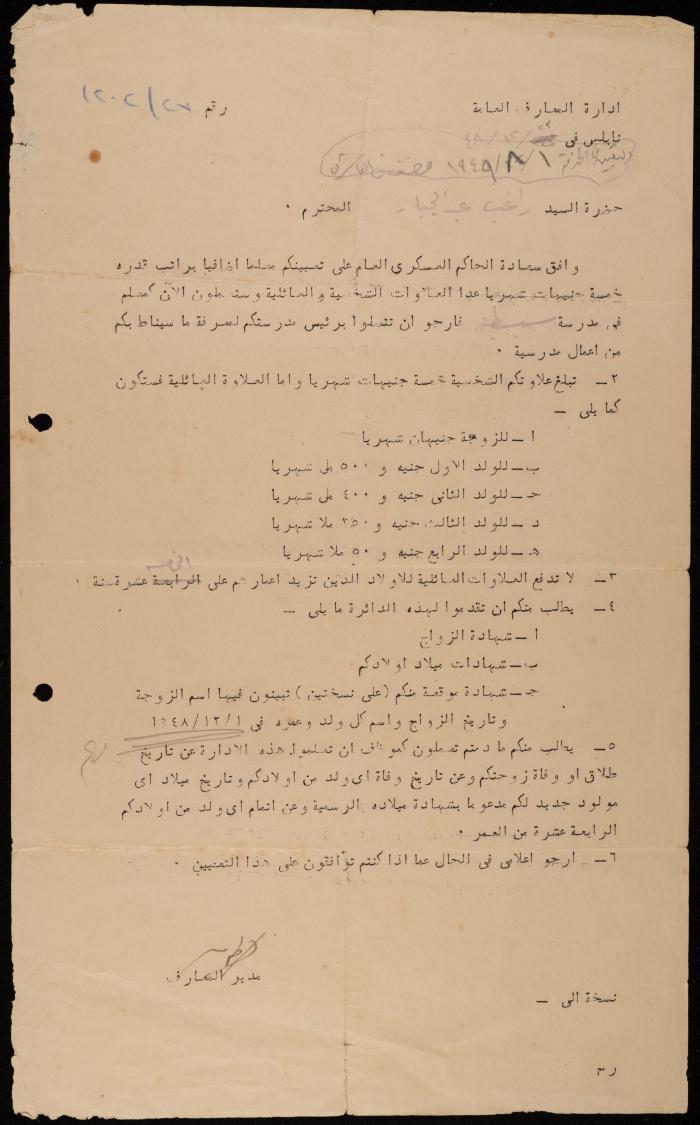 ادارة المعارف العامة
رقم ١٢٠٢/٢٧
نابلس فى ٤٨/١٢/
١٩٤٩/٨/١
حضرة السيد راغب عبد الجبار المحترم ٠
وافق سعادة الحاكم العسكرى العام على تعيينكم معلما اضافيا براتب قدره
خمسة جنيهات شهريا عدا العلاوات الشخصية والعائلية وستعملون الآن كمعلم
فى مدرسة سبسطية فارجو ان تتصلوا برئيس مدرستكم لمعرفة ما سيناط بكم
من اعمال مدرسية ٠
٢ – تبلغ علاوتكم الشخصية خمسة جنيهات شهريا واما العلاوة العائلية فستكون
كما يلى –
ا – للزوجة جنيهان شهريا
ب – للولد الاول جنيه و ٥٠٠ مل شهريا
جـ – للولد الثانى جنيه و ٤٠٠ مل شهريا
د – للولد الثالث جنيه و ٢٥٠ ملا شهريا
هـ – للولد الرابع جنيه و ٥٠ ملا شهريا
الخامسة
٣ – لا تدفع العلاوات العائلية للاولاد الذين تزيد اعمارهم على الرابعة عشرة سنة ٠
٤ – يطلب منكم ان تقدموا لهذه الدائرة ما يلى –
ا – شهادة الزواج
ب – شهادات ميلاد اولادكم
جـ – شهادة موقعة منكم (على نسختين) تبينون فيها اسم الزوجة
وتاريخ الزواج واسم كل ولد وعمره فى ١٩٤٨/١٢/١
٥ – يطلب منكم ما دمتم تعملون كموظف ان تعلموا هذه الادارة عن تاريخ
طلاق او وفاة زوجتكم وعن تاريخ وفاة اى ولد من اولادكم وتاريخ ميلاد اى
مولود جديد لكم مدعوما بشهادة ميلاده الرسمية وعن اتمام اى ولد من اولادكم
الرابعة عشرة من العمر ٠
٦ – ارجو اعلامى فى الحال عما اذا كنتم توافقون على هذا التعيين ٠
مدير المعارف
نسخة الى –